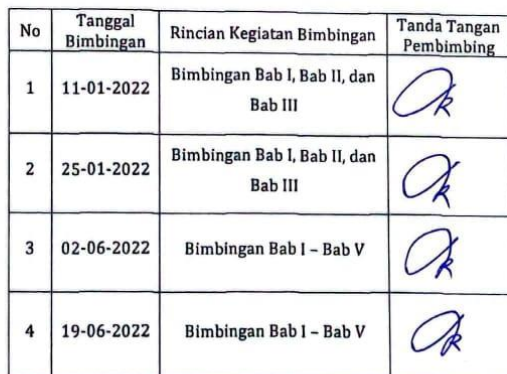 No Tanggal Bimbingan Rincian Kegiatan Bimbingan Tanda Tangan Pembimbing
1 11-01-2022 Bimbingan Bab I, Bab II, dan
Bab III
2 25-01-2022 Bimbingan Bab I, Bab II, dan
Bab III
3 02-06-2022 Bimbingan Bab I – Bab V
4 19-06-2022 Bimbingan Bab I – Bab V